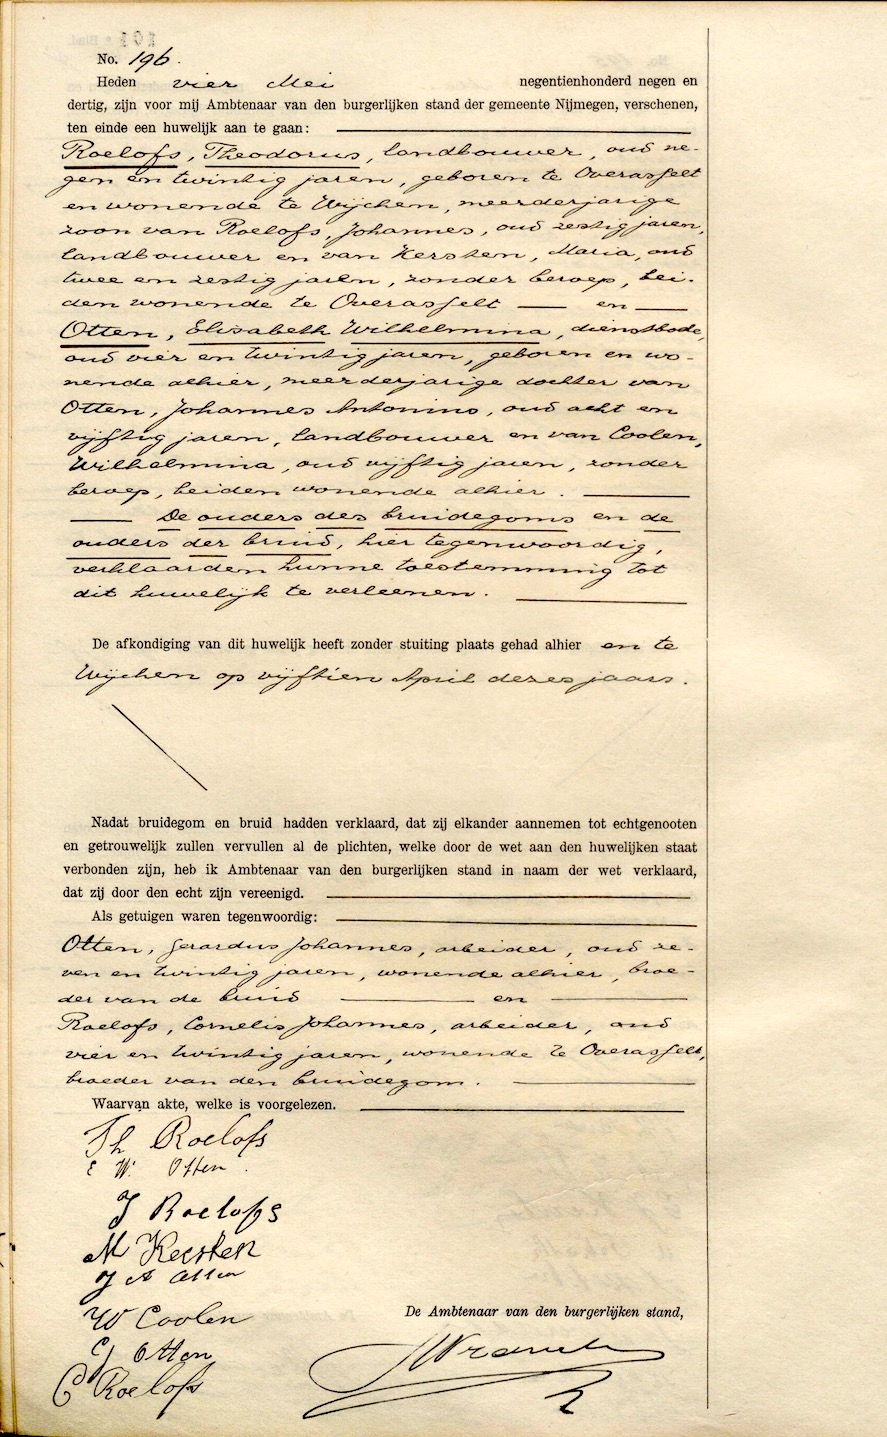 No. 196.
Heden vier Mei negentienhonderd negen en
dertig, zijn voor mij Ambtenaar van den burgerlijken stand der gemeente Nijmegen, verschenen,
ten einde een huwelijk aan te gaan:
Roelofs, Theodorus, landbouwer, oud ne-
gen en twintig jaren, geboren te Overasselt
en wonende te Wijchen, meerderjarige
zoon van Roelofs, Johannes, oud zestig jaren,
landbouwer en van Kersten, Maria, oud
twee en zestig jaren, zonder beroep, bei-
den wonende te Overasselt — en —
Otten, Elisabeth Wilhelmina, dienstbode,
oud vier en twintig jaren, geboren en wo-
nende alhier, meerderjarige dochter van
Otten, Johannes Antonius, oud acht en
vijftig jaren, landbouwer en van Coolen,
Wilhelmina, oud vijftig jaren, zonder
beroep, beiden wonende alhier. —
— De ouders des bruidegoms en de
ouders der bruid, hier tegenwoordig,
verklaarden hunne toestemming tot
dit huwelijk te verleenen. —
De afkondiging van dit huwelijk heeft zonder stuiting plaats gehad alhier en te
Wijchen op vijftien April dezes jaars.
Nadat bruidegom en bruid hadden verklaard, dat zij elkander aannemen tot echtgenooten
en getrouwelijk zullen vervullen al de plichten, welke door de wet aan den huwelijken staat
verbonden zijn, heb ik Ambtenaar van den burgerlijken stand in naam der wet verklaard,
dat zij door den echt zijn vereenigd.
Als getuigen waren tegenwoordig:
Otten, Gerardus Johannes, arbeider, oud ze-
ven en twintig jaren, wonende alhier, broe-
der van de bruid — en —
Roelofs, Cornelis Johannes, arbeider, oud
vier en twintig jaren, wonende te Overasselt,
broeder van den bruidegom. —
Waarvan akte, welke is voorgelezen.
Th Roelofs
E W. Otten.
J Roelofs
M Kersten
J A Otten
W Coolen
De Ambtenaar van den burgerlijken stand,
G J Otten
C Roelofs